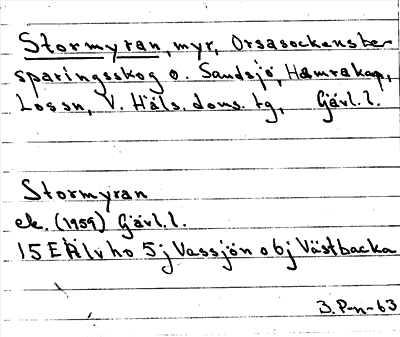 Stormyran, myr, Orsasockensbe-
sparingsskog o. Sandsjö, Hamrakap,
Lossn, V. Häls. doms. tg, Gävl. l.
Stormyran
ek. (1959) Gävl. l.
15 E Älvho 5 j Vassjön o b j Västbacka
3. P-n-63